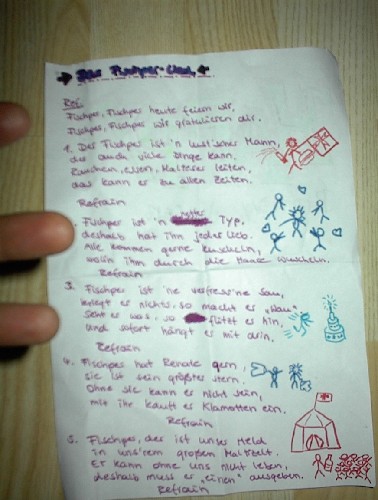 Das Fischper-Lied
Ref:
Fischper, Fischper heute feiern wir,
Fischper, Fischper wir gratulieren dir.
1. Der Fischper ist 'n lust'scher Mann,
der auch viele Dinge kann.
Rauchen, essen, Malteser leiten,
das kann er zu allen Zeiten.
Refrain
Fischper ist 'n netter Typ,
deshalb hat ihn jeder lieb.
Alle kommen gerne kuscheln,
woll'n ihm durch die Haare wuscheln.
Refrain
3. Fischper ist 'ne verfress'ne Sau,
kriegt er nichts, so macht er "Wau"
seht er was, so flitzt er hin,
und sofort hängt er mit drin.
Refrain
4. Fischper hat Renate gern,
sie ist sein größter Stern.
Ohne sie kann er nicht sein,
mit ihr kauft er Klamotten ein.
Refrain
5. Fischper, der ist unser Held
in uns'rem großen Malteszelt.
Er kann ohne uns nicht leben,
deshalb muss er "einen" ausgeben.
Refrain